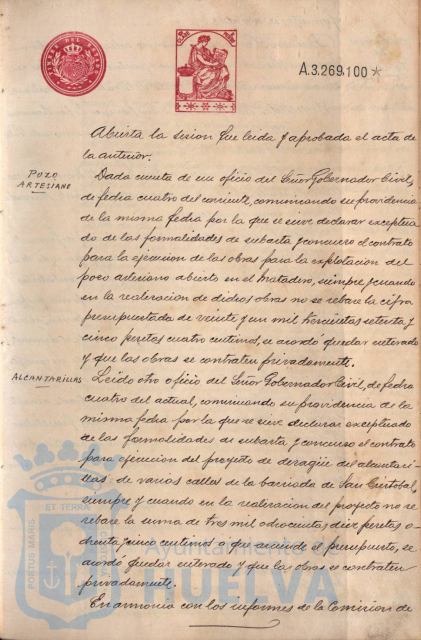 TIMBRE DEL ESTADO
A.3.269,100 *
Abierta la sesión fue leida y aprobada el acta de
la anterior.
POZO
ARTESIANO
Dada cuenta de un oficio del Señor Gobernador Civil,
de fecha cuatro del corriente, comunicando su providencia
de la misma fecha por la que se sirve declarar exceptua
do de las formalidades de subasta y concurso el contrato
para la ejecucion de las obras para la explotacion del
pozo artesiano abierto en el Matadero, siempre y cuando
en la realizacion de dichas obras no se rebase la cifra
presupuestada de veinte y un mil trescientas setenta y
cinco pesetas cuatro centimos, se acordó quedar enterado
y que las obras se contraten privadamente.
ALCANTARILLAS
Leido otro oficio del Señor Gobernador Civil, de fecha
cuatro del actual, comunicando su providencia de la
misma fecha por la que se sirve declarar exceptuado
de las formalidades de subasta y concurso el contrato
para ejecucion del proyecto de desagüe del alcantari-
llas de varias calles de la barriada de San Cristobal,
siempre y cuando en la realizacion del proyecto no se
rebase la suma de tres mil ochocientas diez pesetas o-
chenta y cinco centimos a que asciende el presupuesto, se
acordó quedar enterado y que las obras se contraten
privadamente.
En armonia con los informes de la Comisión de
PORTUS MARIS ET TERRAE
Ayuntamiento de
HUELVA